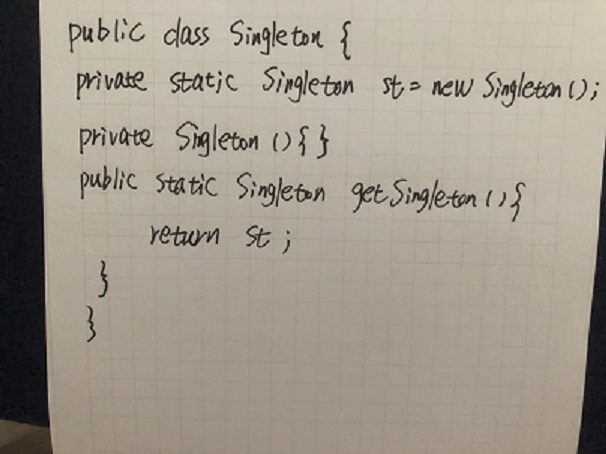 public class Singleton {
private static Singleton st = new Singleton();
private Sigleton () { }
public static Singleton getSingleton() {
return st ;
}
}